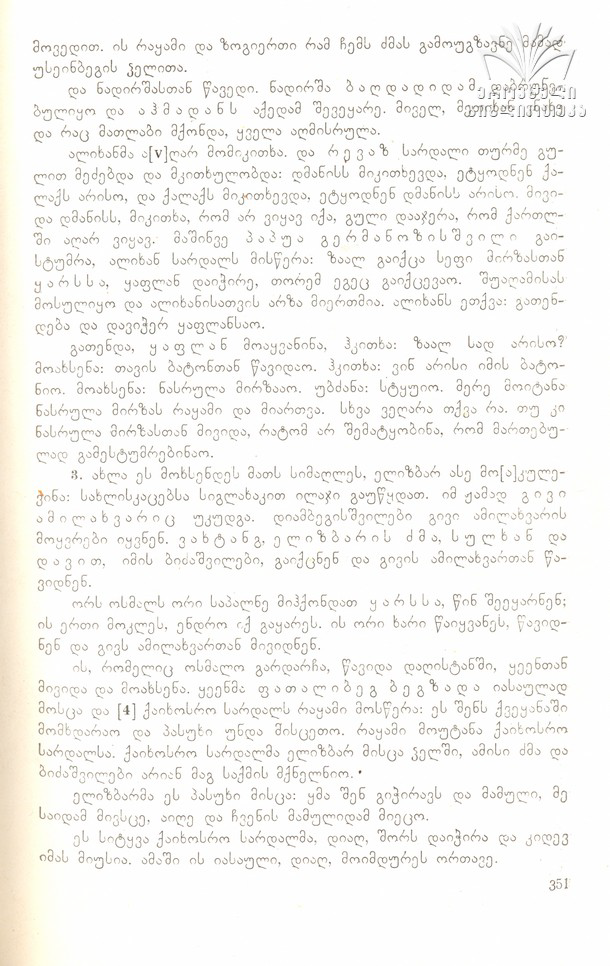 მოვედით. ის რაყამი და ზოგიერთი რამ ჩემს ძმას გამოუგზავნე მამად
უსეინბეგის ჴელითა.
და ნადირშასთან წავედი. ნადირშა ბაღდადიდამ დაბრუნე-
ბულიყო და აჰმადანს აქედამ შევეყარე. მიველ,
და რაც მათლაბი მქონდა, ყველა აღმისრულა.
ალიხანმა ა[v]ღარ მომიკითხა. და რევაზ სარდალი თურმე გუ-
ლით მეძებდა და მკითხულობდა: დმანისს მიკითხევდა, ეტყოდნენ ქა-
ლაქს არისო, და ქალაქს მიკითხევდა, ეტყოდნენ დმანისს არისო. მივი-
და დმანისს, მიკითხა, რომ არ ვიყავ იქა, გული დააჯერა, რომ ქართლ-
ში აღარ ვიყავ. მაშინვე პაპუა გერმანოზისშვილი გაი-
სტუმრა, ალიხან სარდალს მისწერა: ზაალ გაიქცა სეფი მირზასთან
ყარსსა, ყაფლან დაიჭირე, თორემ ეგეც გაიქცევაო. შუაღამისას
მოსულიყო და ალიხანისათვის არზა მიერთმია. ალიხანს ეთქვა: გათენ-
დება და დავიჭერ ყაფლანსაო.
გათენდა, ყაფლან მოაყვანინა, ჰკითხა: ზაალ სად არისო?
მოახსენა: თავის ბატონთან წავიდაო. ჰკითხა: ვინ არისი იმის ბატო-
ნიო. მოახსენა: ნასრულა მირზააო. უბძანა: სტყუიო. მერე მოიტანა
ნასრულა მირზას რაყამი და მიართვა. სხვა ვეღარა თქვა რა. თუ კი
ნასრულა მირზასთან მივიდა, რატომ არ შემატყობინა, რომ მართებუ-
ლად გამესტუმრებინაო.
3. ახლა ეს მოხსენდეს მათს სიმაღლეს, ელიზბარ ასე მო[ა]კულე-
ვინა: სახლისკაცებსა სიგლახაკით ილაჯი გაუწყდათ. იმ ჟამად გივი
ამილახვარიც უკუდგა. დიამბეგისშვილები გივი ამილახვარის
მოყვრები იყვნენ. ვახტანგ, ელიზბარის ძმა, სულხან და
დავით, იმის ბიძაშვილები, გაიქცნენ და გივის ამილახვართან წა-
ვიდნენ.
ორს ოსმალს ორი საპალნე მიჰქონდათ ყარსსა, წინ შეეყარნენ;
ის ერთი მოკლეს, ენდრო იქ გაყარეს. ის ორი ხარი წაიყვანეს, წავიდ-
ნენ და გივს ამილახვართან მივიდნენ.
ის, რომელიც ოსმალო გარდარჩა, წავიდა დაღისტანში, ყეენთან
მივიდა და მოახსენა. ყეენმა ფათალიბეგ ბეგზადა იასაულად
მოსცა და [4] ქაიხოსრო სარდალს რაყამი მოსწერა: ეს შენს ქვეყანაში
მომხდარაო და პასუხი უნდა მისცეთო. რაყამი მოუტანა ქაიხოსრო
სარდალსა. ქაიხოსრო სარდალმა ელიზბარ მისცა ჴელში, ამისი ძმა და
ბიძაშვილები არიან მაგ საქმის მქნელნიო.
ელიზბარმა ეს პასუხი მისცა: ყმა შენ გიჭირავს და მამული, მე
საიდამ მივსცე, აიღე და ჩვენის მამულიდამ მიეცო.
ეს სიტყვა ქაიხოსრო სარდალმა, დიაღ, შორს დაიჭირა და კიდევ
იმას მიუსია. ამაში ის იასაული, დიაღ, მოიმდურეს ორთავე.
351